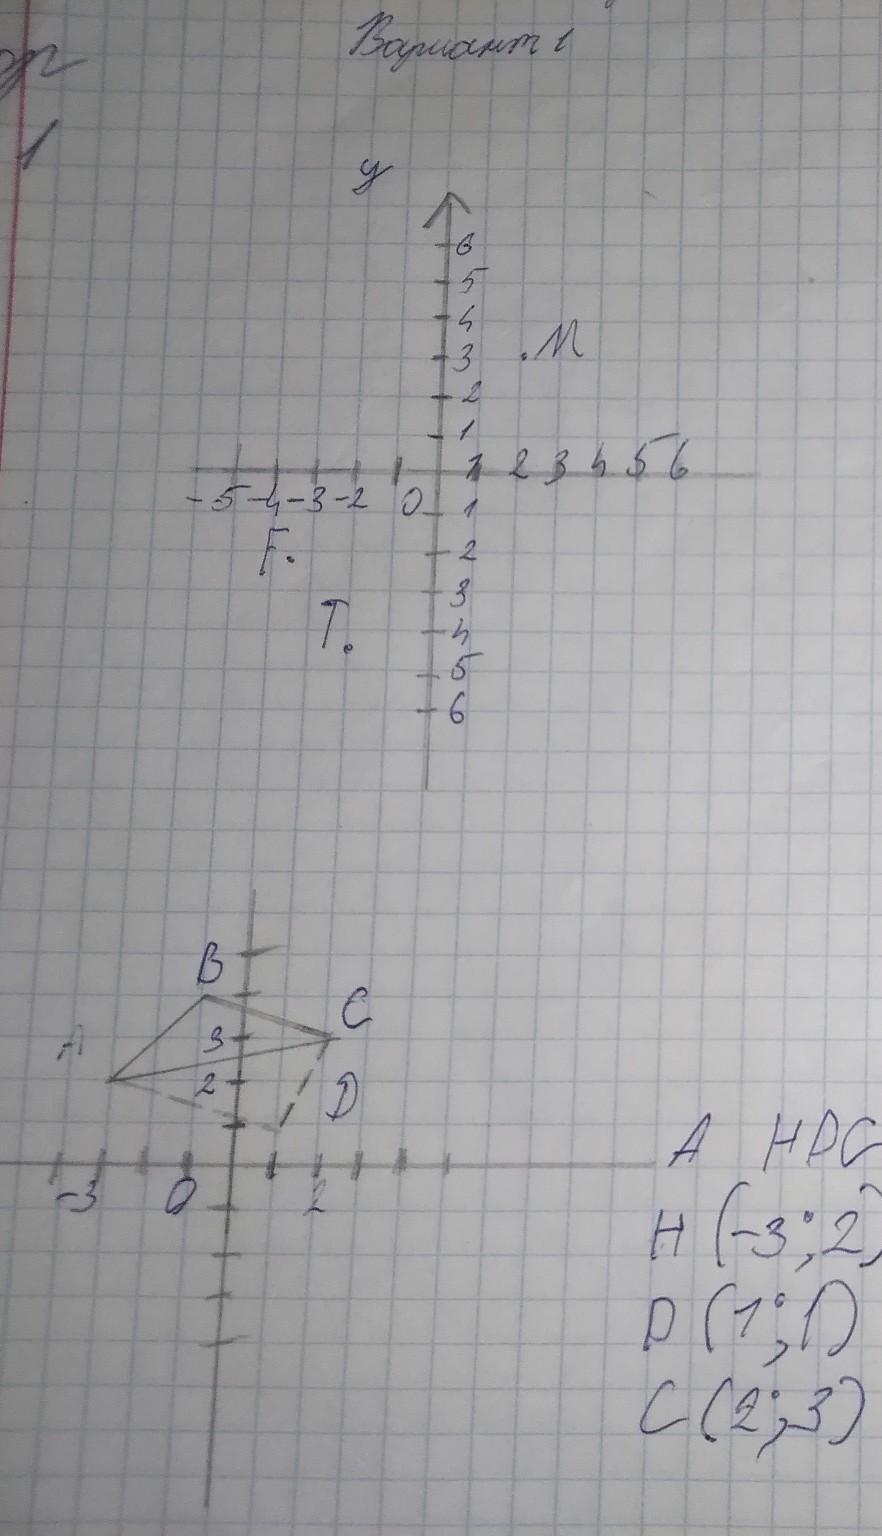 Вариант 1
1
y
6
5
4
3 . M
2
1
1 2 3 4 5 6
-5 -4 -3 -2 0 1
F. 2
3
T. 4
5
6
B
C
A 3
2 D
-3 0 2
Δ HDC
H (-3; 2)
D (1; 1)
C (2; 3)